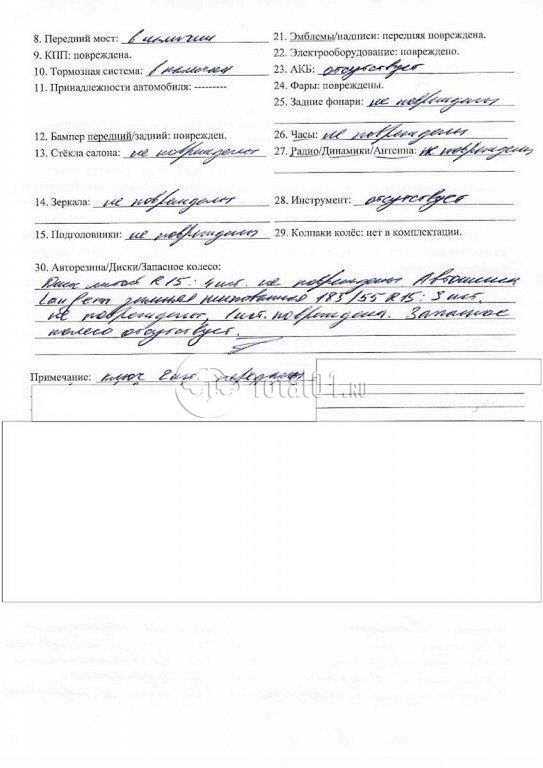 8. Передний мост: в наличии
9. КПП: повреждена.
10. Тормозная система: в наличии
11. Принадлежности автомобиля: ---------
12. Бампер передний/задний: поврежден.
13. Стёкла салона: не повреждены
14. Зеркала: не повреждены
15. Подголовники: не повреждены
21. Эмблемы/надписи: передняя повреждена.
22. Электрооборудование: повреждено.
23. АКБ: отсутствует
24. Фары: повреждены.
25. Задние фонари: не повреждены
26. Часы: не повреждены
27. Радио/Динамики/Антенна: не повреждены
28. Инструмент: отсутствует
29. Колпаки колёс: нет в комплектации.
30. Авторезина/Диски/Запасное колесо:
Диск литой R15: 4 шт. не повреждены Автошина
Laufenn зимняя шипованная 185/55 R15: 3 шт.
не повреждены, 1 шт. повреждена. Запасное
колесо отсутствует.
Примечание: ключ 2 шт. переданы
total01.ru